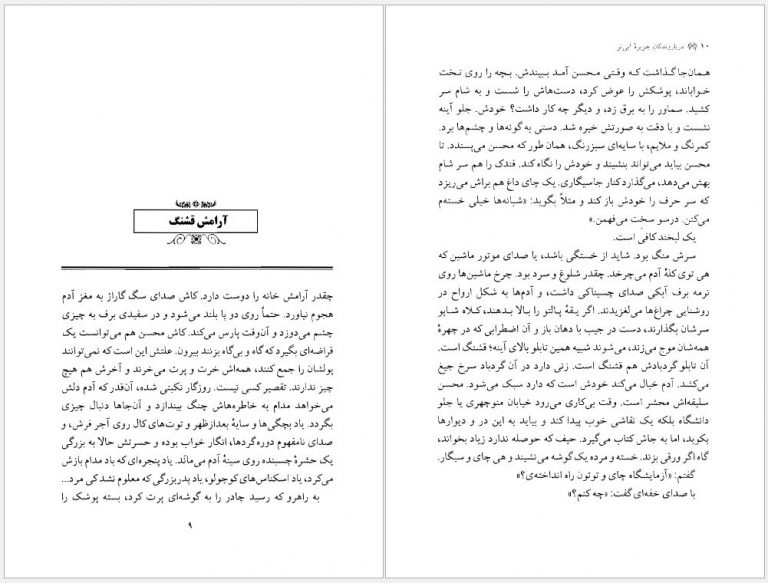 آرامش قشنگ
چقدر آرامش خانه را دوست دارد. کاش صدای سگ گاراژ به مغز آدم
هجوم نیاورد. حتماً روی دو پا بلند می‌شود و در سفیدی برف به چیزی
چشم می‌دوزد و آن‌وقت پارس می‌کند. کاش محسن هم می‌توانست یک
قراضه‌ای بگیرد که گاه و بی‌گاه بزنند بیرون. علتش این است که نمی‌توانند
پولشان را جمع کنند، همه‌اش خرت و پرت می‌خرند و آخرش هم هیچ
چیز ندارند. تقصیر کسی نیست. روزگار نکبتی شده، آن‌قدر که آدم دلش
می‌خواهد مدام به خاطره‌هاش چنگ بیندازد و آن‌جاها دنبال چیزی
بگردد. یاد بچگی‌ها و سایهٔ بعدازظهر و توت‌های کال روی آجر فرش، و
صدای نامفهوم دوره‌گردها، انگار خواب بوده و حسرتش حالا به بزرگی
یک حشرهٔ چسبنده روی سینهٔ آدم می‌ماند. یاد پنجره‌ای که باد مدام بازش
می‌کرد، یاد اسکناس‌های کوچولو، یاد پدربزرگی که معلوم نشد کی مرد...
به راهرو که رسید چادر را به گوشه‌ای پرت کرد، بسته پوشک را
۹
۱۰ دریاروندگان جزیرهٔ آبی‌تر
همان‌جا گذاشت که وقتی محسن آمد ببیندش. بچه را روی تخت
خواباند، پوشکش را عوض کرد، دست‌هاش را شست و به شام سر
کشید. سماور را به برق زد، و دیگر چه کار داشت؟ خودش. جلو آینه
نشست و با دقت به صورتش خیره شد. دستی به گونه‌ها و چشم‌ها برد.
کمرنگ و ملایم، با سایه‌ای سبزرنگ، همان طور که محسن می‌پسندد. تا
محسن بیاید می‌تواند بنشیند و خودش را نگاه کند. فندک را هم سر شام
بهش می‌دهد، می‌گذارد کنار جاسیگاری. یک چای داغ هم براش می‌ریزد
که سر حرف را خودش باز کند و مثلاً بگوید: «شبانه‌ها خیلی خسته‌م
می‌کنن. درسو سخت می‌فهمن.»
یک لبخند کافی است.
سرش منگ بود. شاید از خستگی باشد، یا صدای موتور ماشین که
هی توی کلهٔ آدم می‌چرخد. چقدر شلوغ و سرد بود. چرخ ماشین‌ها روی
نرمه برف آبکی صدای چسبناکی داشت، و آدم‌ها به شکل ارواح در
روشنایی چراغ‌ها می‌لغزیدند. اگر یقهٔ پالتو را بالا بدهند، کلاه شاپو
سرشان بگذارند، دست در جیب با دهان باز و آن اضطرابی که در چهرهٔ
همه‌شان موج می‌زند، می‌شوند شبیه همین تابلو بالای آینه؛ قشنگ است.
آن تابلو گردبادش هم قشنگ است. زنی دارد در آن گردباد سرخ جیغ
می‌کشد. آدم خیال می‌کند خودش است که دارد سبک می‌شود. محسن
سلیقه‌اش محشر است. وقت بی‌کاری می‌رود خیابان منوچهری یا جلو
دانشگاه بلکه یک نقاشی خوب پیدا کند و بیاید به این در و دیوارها
بکوبد، اما به جاش کتاب می‌گیرد. حیف که حوصله ندارد زیاد بخواند،
گاه اگر ورقی بزند. خسته و مرده یک گوشه می‌نشیند و هی چای و سیگار.
گفتم: «آزمایشگاه چای و توتون راه انداخته‌ی؟»
با صدای خفه‌ای گفت: «چه کنم؟»